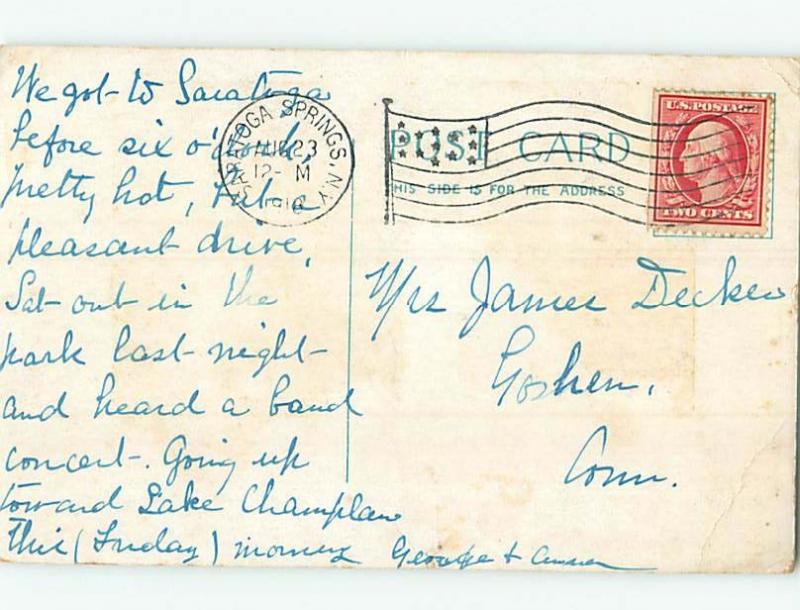 We got to Saratoga
before six o'clock,
Pretty hot, but a
pleasant drive.
Sat out in the
park last night
and heard a band
concert. Going up
toward Lake Champlain
this (Friday) morning
George &
SARATOGA SPRINGS, N.Y.
AUG 23
12- M
POST CARD
THIS SIDE IS FOR THE ADDRESS
U.S. POSTAGE
TWO CENTS
Mrs James Decker
Goshen,
Conn.